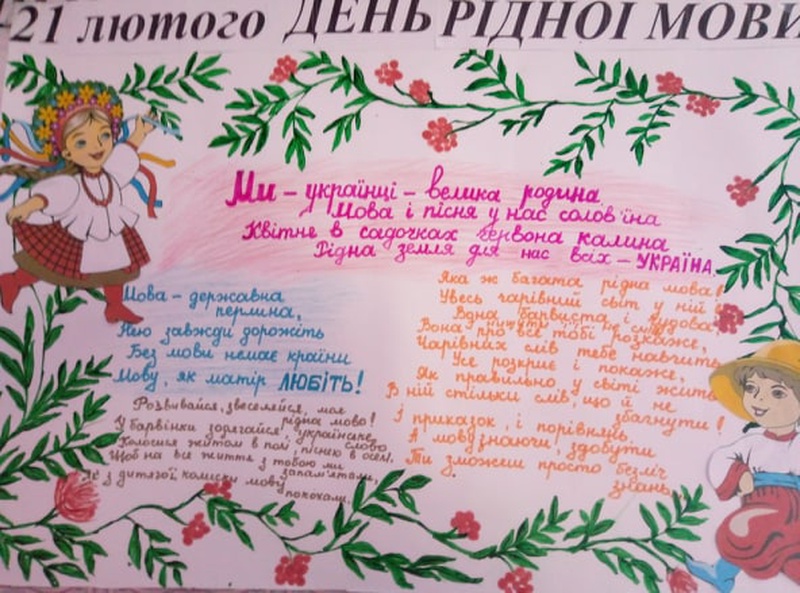 21 лютого ДЕНЬ РІДНОЇ МОВИ
Ми - українці - велика родина
Мова і пісня у нас солов'їна
Квітне в садочках червона калина
Рідна земля для нас всіх - УКРАЇНА.
Мова - державна
перлина,
Нею завжди дорожіть
Без мови немає країни
Мову, як матір ЛЮБІТЬ!
Розвивайся, звеселяйся, моя
рідна мово!
У барвінки зодягайся, українське
слово
Колосися житом в полі, піснею в оселі.
Щоб на все життя з тобою ми
запам'ятали,
Як з дитячої колиски мову
покохали.
Яка ж багата рідна мова!
Увесь чарівний світ у ній!
Вона барвиста і чудова,
Вона про все тобі розкаже,
Чарівних слів тебе навчить
Усе розкриє і покаже,
Як правильно у світі жить
В ній стільки слів, що й не
збагнути!
І приказок, і порівнянь,
А мову знаючи, здобути
Ти зможеш просто безліч
знань.